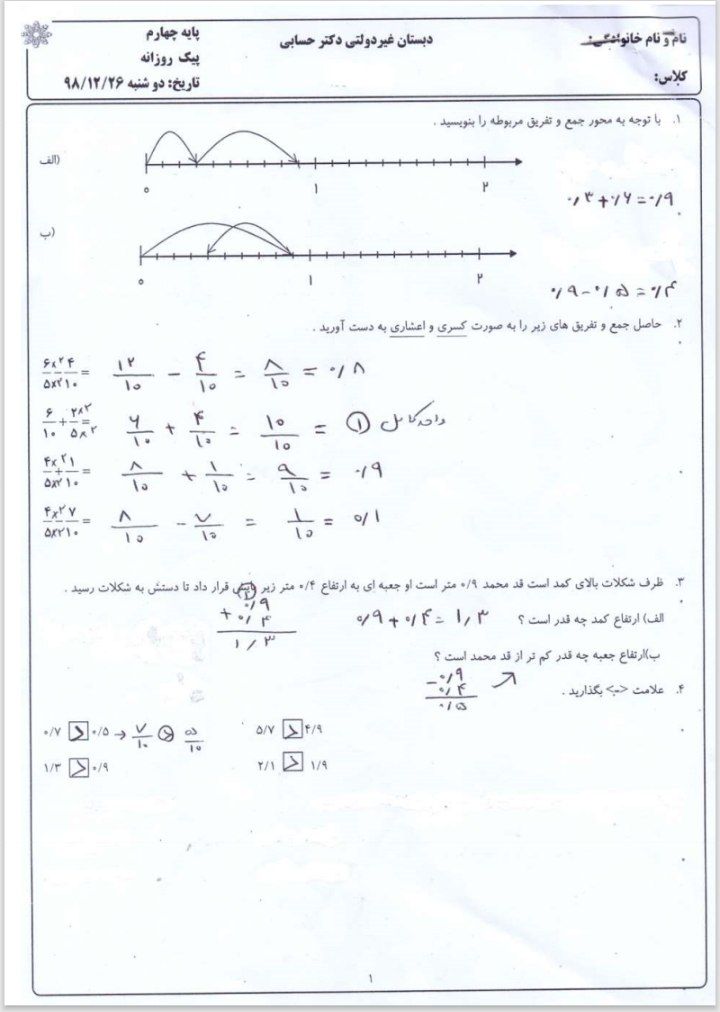 نام و نام خانوادگی: دبستان غیردولتی دکتر حسابی پایه چهارم
پیک روزانه
کلاس: تاریخ: دو شنبه ۹۸/۱۲/۲۶
۱. با توجه به محور جمع و تفریق مربوطه را بنویسید .
الف)
۰ ۱ ۲
۰/۳+۰/۶=۰/۹
ب)
۰ ۱ ۲
۰/۹-۰/۵=۰/۴
۲. حاصل جمع و تفریق های زیر را به صورت کسری و اعشاری به دست آورید .
۶×۲/۵×۲ - ۴/۱۰ = ۱۲/۱۰ - ۴/۱۰ = ۸/۱۰ = ۰/۸
۶/۱۰ + ۲×۲/۵×۲ = ۶/۱۰ + ۴/۱۰ = ۱۰/۱۰ = ۱ واحد کامل
۴×۲/۵×۲ + ۱/۱۰ = ۸/۱۰ + ۱/۱۰ = ۹/۱۰ = ۰/۹
۴×۲/۵×۲ - ۷/۱۰ = ۸/۱۰ - ۷/۱۰ = ۱/۱۰ = ۰/۱
۳. ظرف شکلات بالای کمد است قد محمد ۰/۹ متر است او جعبه ای به ارتفاع ۰/۴ متر زیر پایش قرار داد تا دستش به شکلات رسید .
الف) ارتفاع کمد چه قدر است ؟ ۰/۹+۰/۴=۱/۳
۱
۰/۹
+ ۰/۴
۱/۳
ب)ارتفاع جعبه چه قدر کم تر از قد محمد است ؟
- ۰/۹
۰/۴
۰/۵
۴. علامت <=> بگذارید .
۰/۷ > ۰/۵ → ۷/۱۰ > ۵/۱۰
۵/۷ > ۴/۹
۱/۳ > ۰/۹
۲/۱ > ۱/۹
۱